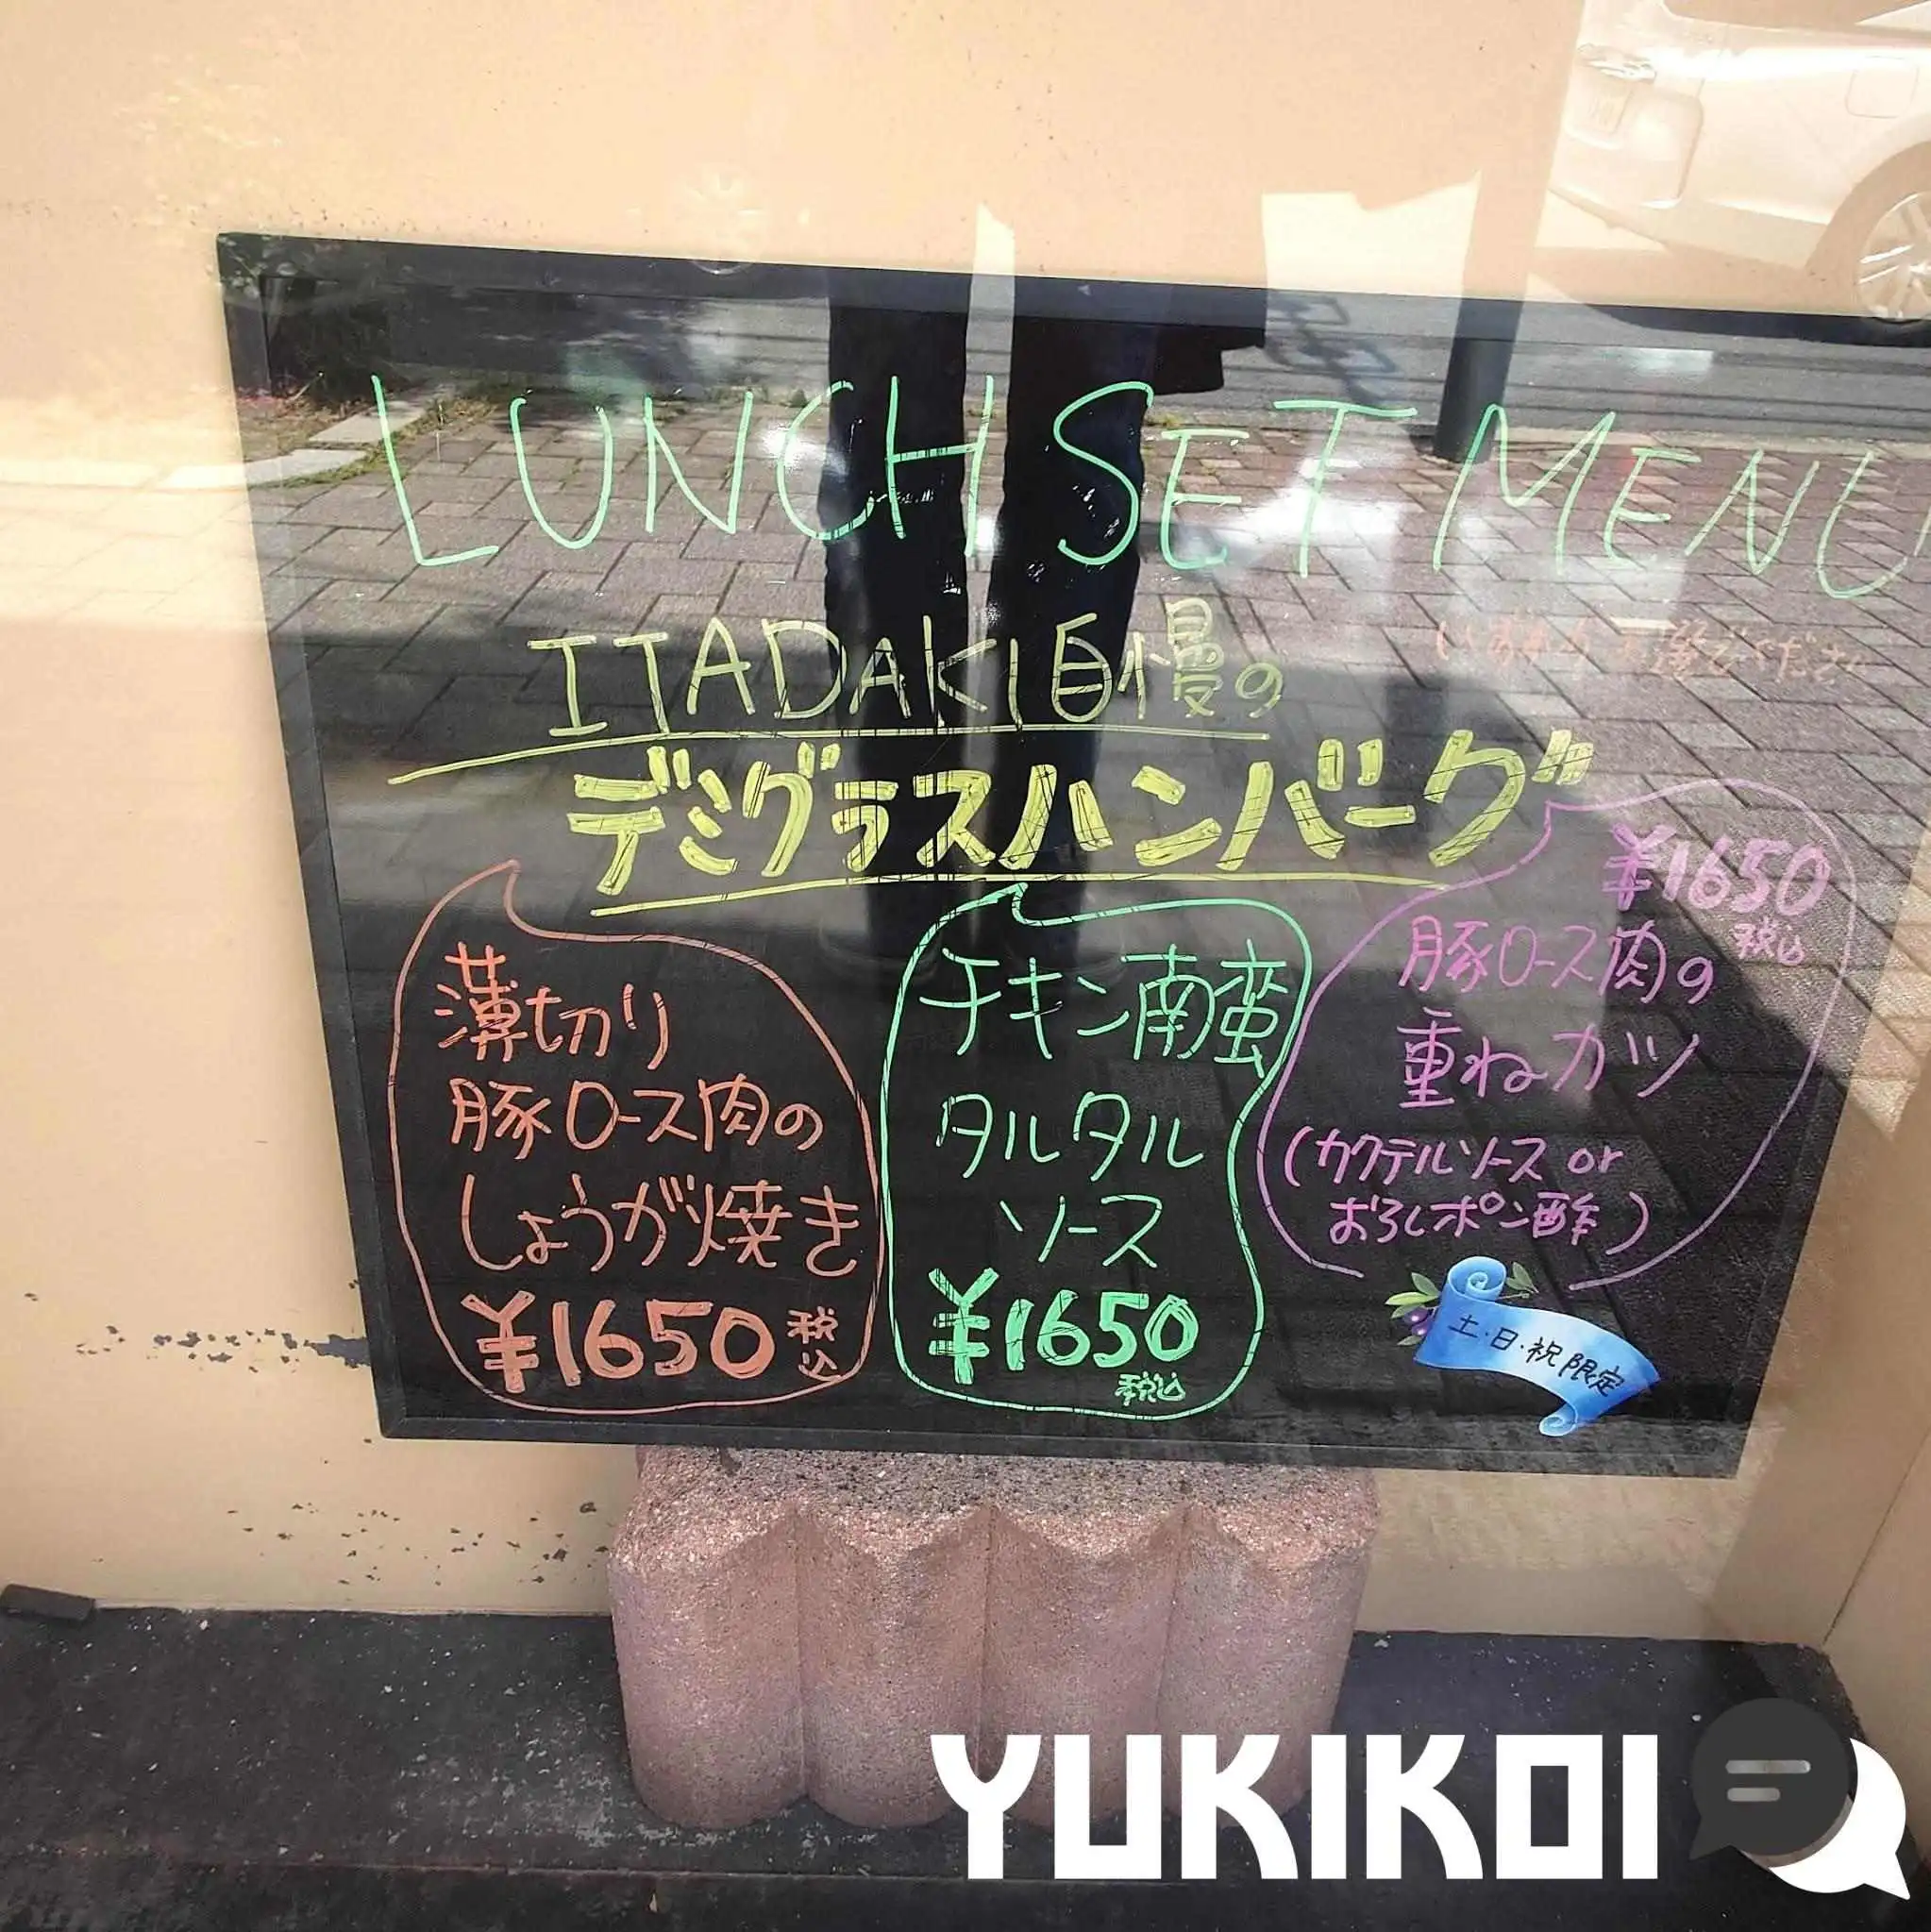 LUNCH SET MENU
ITADAKI自慢の
デミグラスハンバーグ
薄切り
豚ロース肉の
しょうが焼き
¥1650 税込
チキン南蛮
タルタル
ソース
¥1650
税込
¥1650
税込
豚ロース肉の
重ねカツ
(カクテルソース or
おろしポン酢)
土・日・祝 限定
YUKIKOI